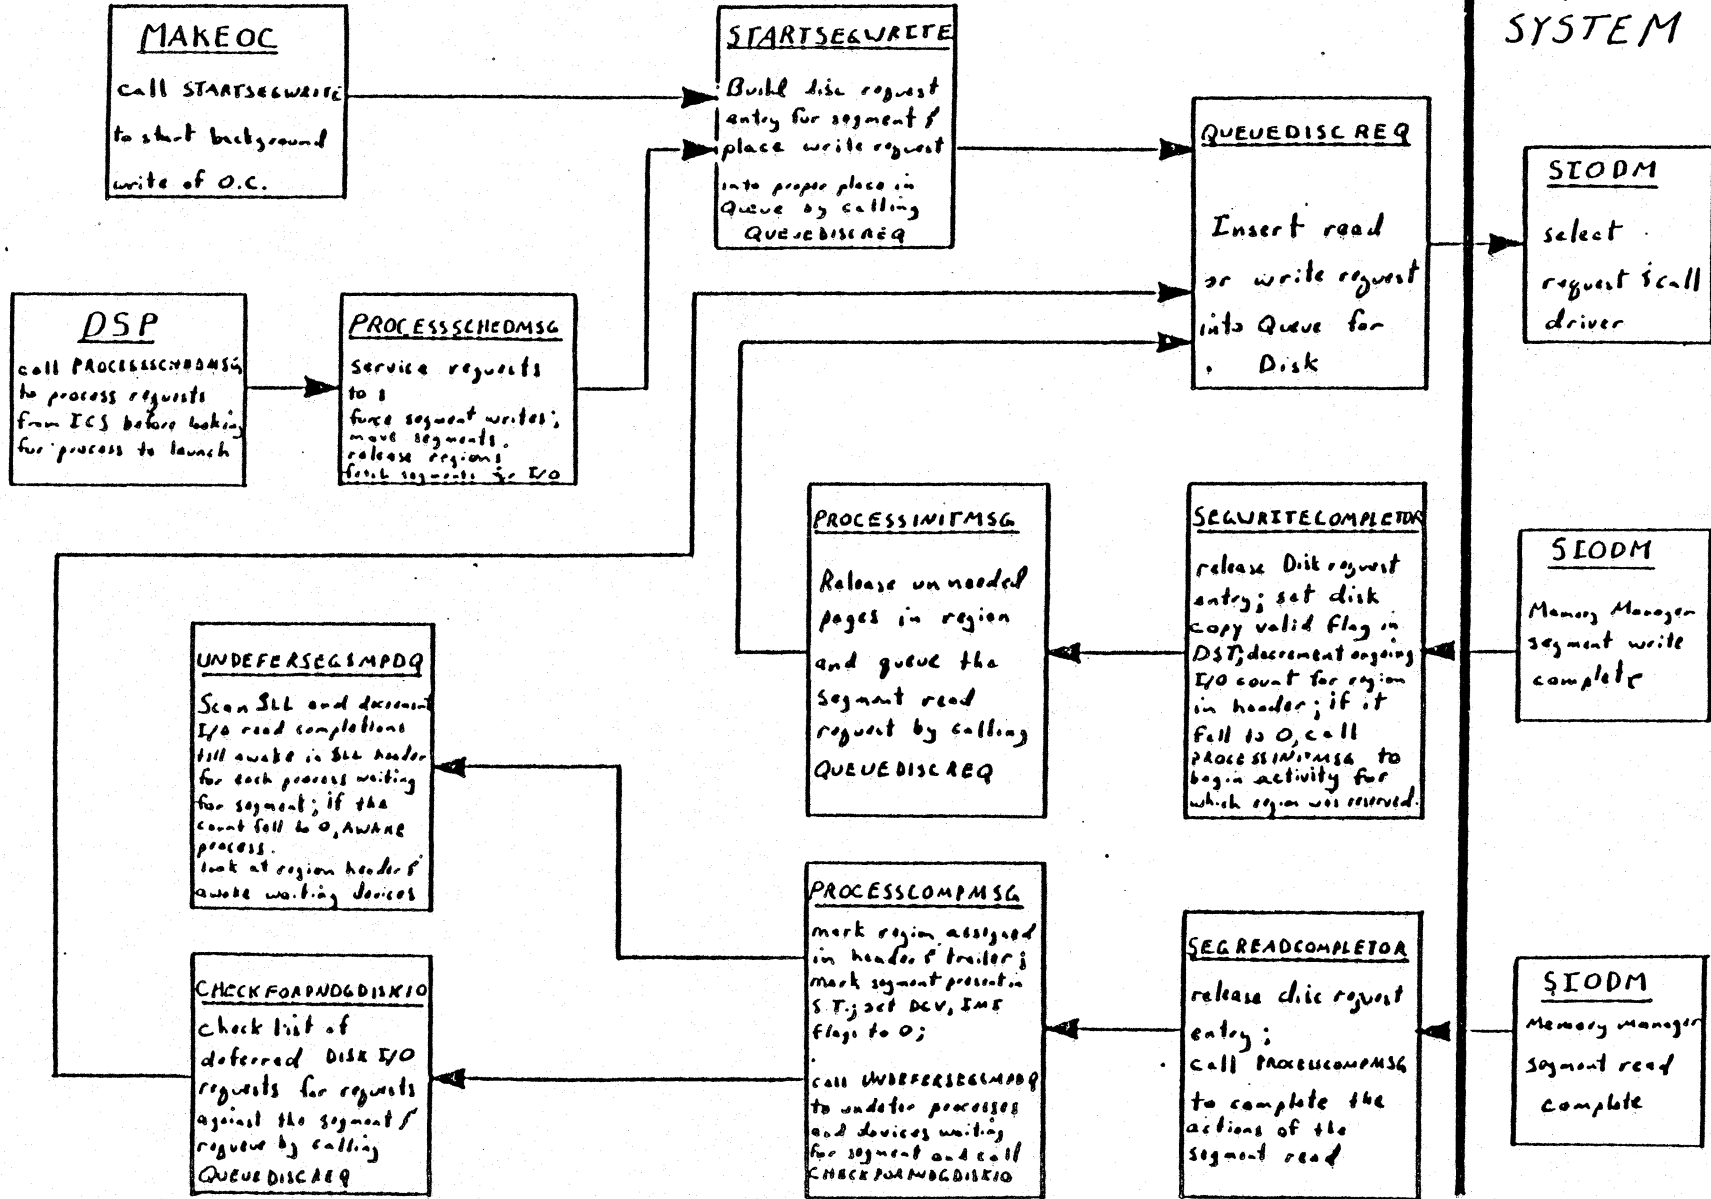 SYSTEM
MAKEOC
call STARTSEGWRITE
to start background
write of O.C.
STARTSEGWRITE
Build disc request
entry for segment &
place write request
into proper place in
Queue by calling
QUEUEDISCREQ
QUEUEDISCREQ
Insert read
or write request
into Queue for
Disk
SIODM
select
request & call
driver
DSP
call PROCESSSCHEDMSG
to process requests
from ICS before looking
for process to launch
PROCESSSCHEDMSG
service requests
to :
force segment writes;
move segments.
release regions
fetch segments for I/O
PROCESSINITMSG
Release unneeded
pages in region
and queue the
segment read
request by calling
QUEUEDISCREQ
SEGWRITECOMPLETOR
release Disk request
entry; set disk
copy valid flag in
DST; decrement ongoing
I/O count for region
in header; if it
fell to 0, call
PROCESSINITMSG to
begin activity for
which region was reserved.
SIODM
Memory Manager
segment write
complete
UNDEFERSEGSMPDQ
Scan SLL and decrement
I/O read completions
till awake in SLL header
for each process waiting
for segment; if the
count fell to 0, AWAKE
process.
look at region header &
awake waiting devices
PROCESSCOMPMSG
mark region assigned
in header & trailer;
mark segment present in
S.T.; set DCV, IMI
flags to 0;
call UNDEFERSEGSMPDQ
to undefer processes
and devices waiting
for segment and call
CHECKFORPNDGDISKIO
SEGREADCOMPLETOR
release disc request
entry;
call PROCESSCOMPMSG
to complete the
actions of the
segment read
SIODM
Memory manager
segment read
complete
CHECKFORPNDGDISKIO
check list of
deferred DISK I/O
requests for requests
against the segment &
requeue by calling
QUEUEDISCREQ